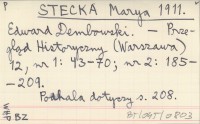 P STECKA Marya 1911.
Edward Dembowski. — Prze-
gląd Historyczny (Warszawa)
12, nr 1: 43-70; nr 2: 185-
-209.
Podhala dotyczy s. 208.
BZ